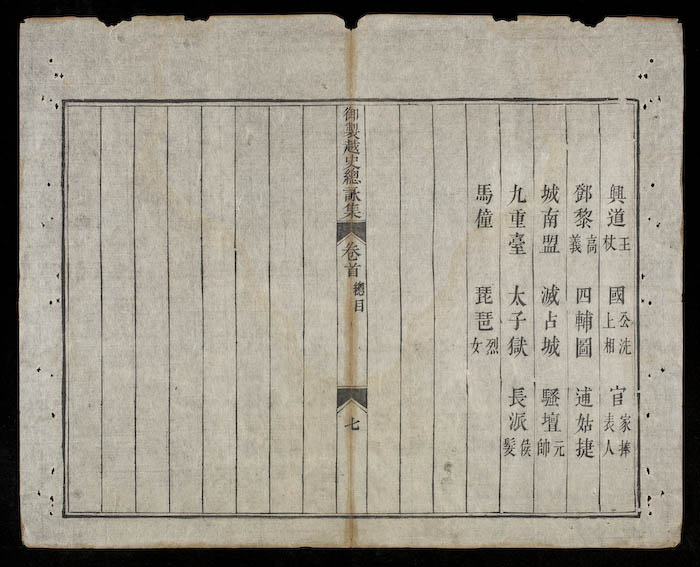 興道王杖　國公洗上相　官家捧表人
鄧黎高義　四輔圖　逋姑捷
城南盟　滅占城　騷壇元帥
九重臺　太子獄　長派侯髮
馬僮　琵琶烈女
御製越史總詠集　卷首　總目　七